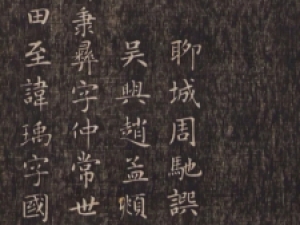 聊城周馳譔
吳興趙孟頫
秉彞字仲常世
田至諱瑀字國